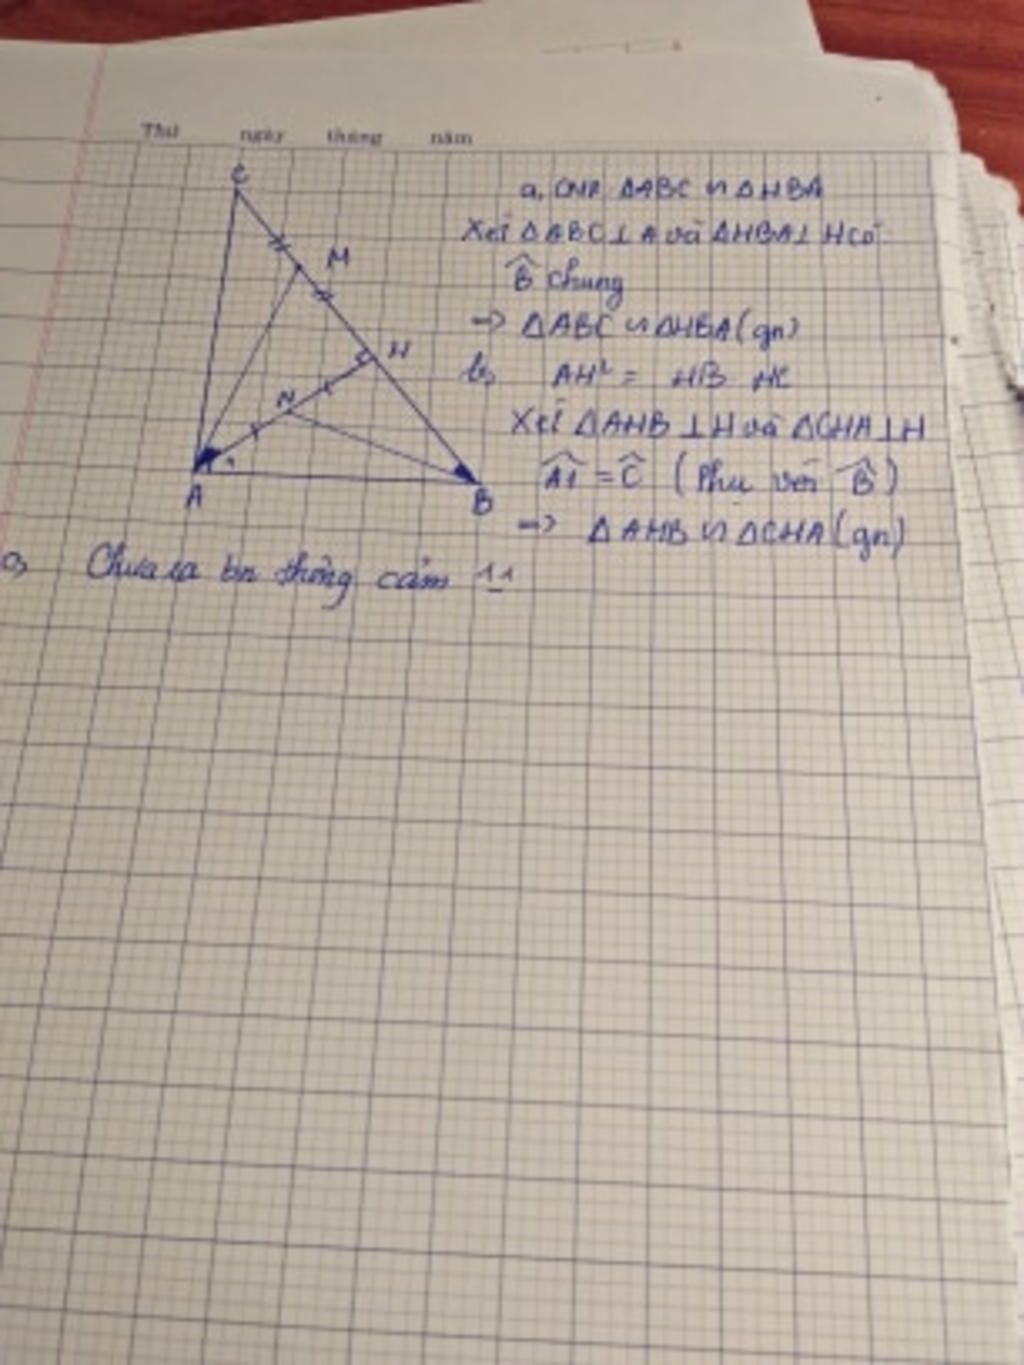 Thứ ngày tháng năm
C
M
H
N
A 1
B
a, CMR ΔABC ∽ ΔHBA
Xét ΔABC ⊥ A và ΔHBA ⊥ H có
B̂ chung
=> ΔABC ∽ ΔHBA (gn)
b, AH² = HB HC
Xét ΔAHB ⊥ H và ΔCHA ⊥ H
Â1 = Ĉ (Phụ với B̂)
=> ΔAHB ∽ ΔCHA (gn)
c, Chưa ra bn thông cảm ^^